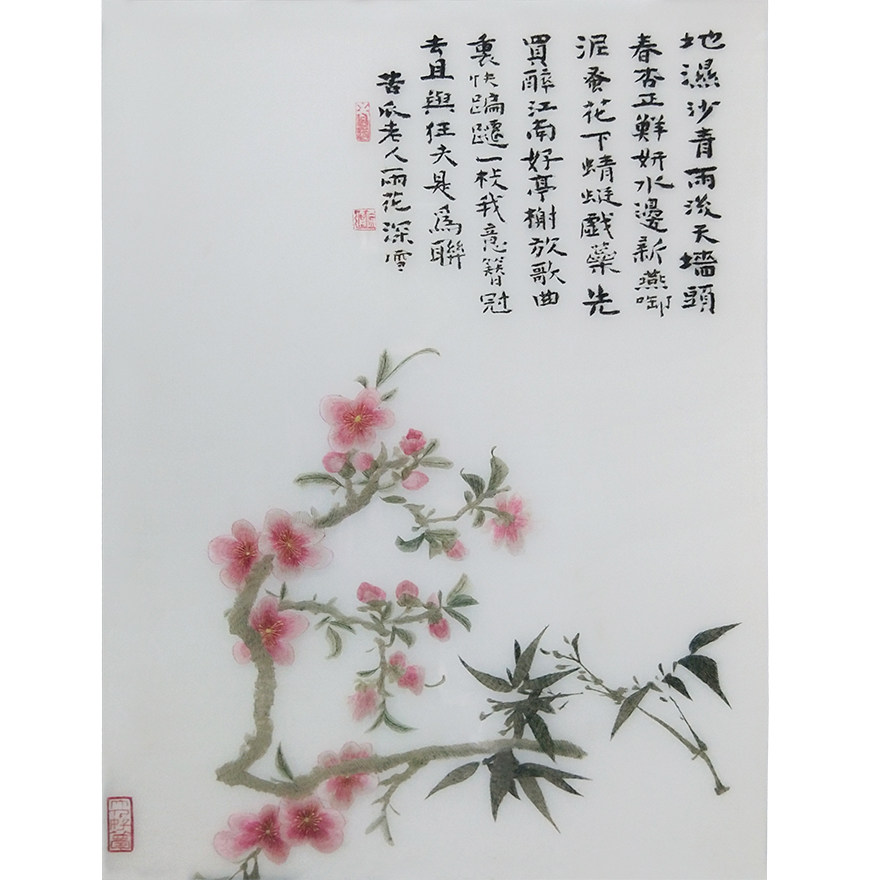 地濕沙青雨後天墻頭
春杏正鮮妍水邊新燕啣
泥蚤花下蜻蜓戲藥先
買醉江南好亭榭放歌曲
裏快蹁躚一枝我意簪冠
去且與狂夫是為聯
苦瓜老人雨花深雪